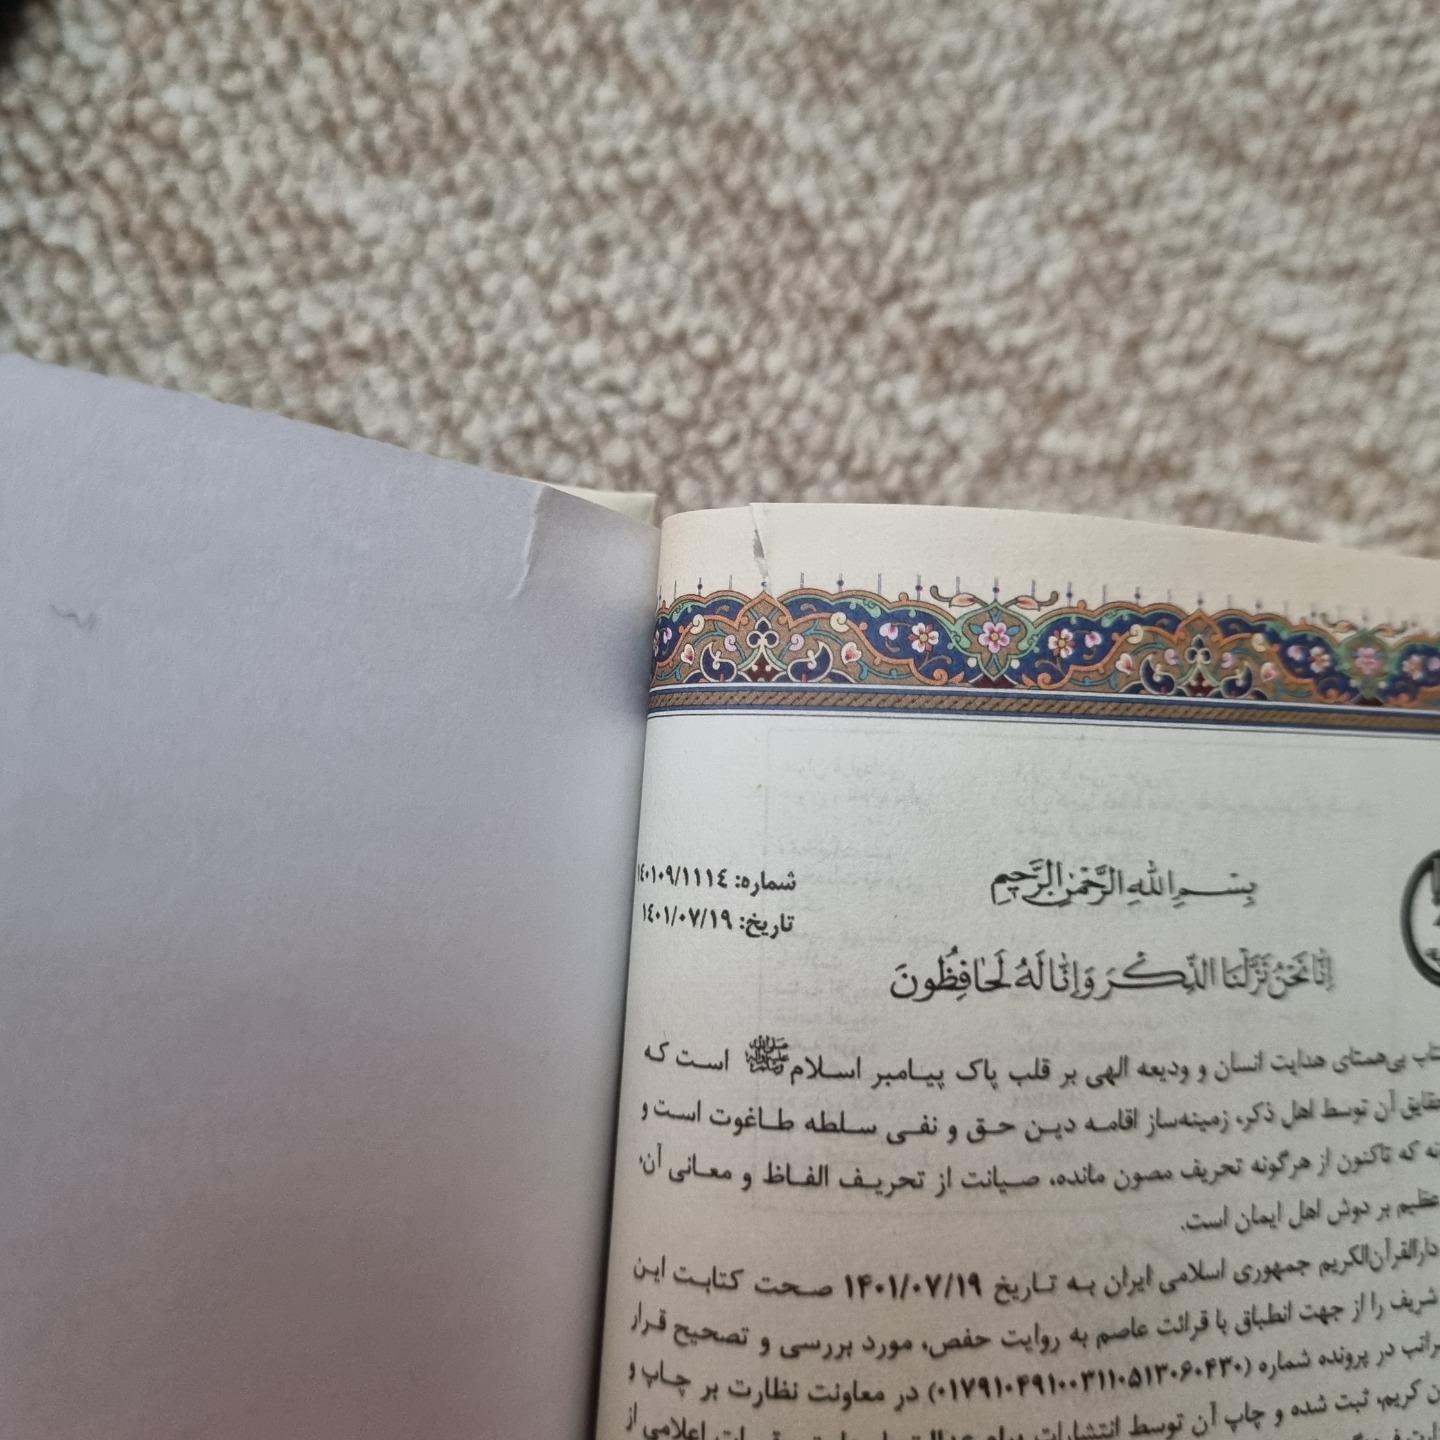 بِسْمِ اللهِ الرَّحْمٰنِ الرَّحِیمِ
شماره: ۱۴۰۱۰۹/۱۱۱۴
تاریخ: ۱۴۰۱/۰۷/۱۹
اِنّا نَحْنُ نَزَّلْنَا الذِّکْرَ وَاِنّا لَهُ لَحافِظُونَ
بی‌همتای هدایت انسان و ودیعه الهی بر قلب پاک پیامبر اسلام ﷺ است که
آن توسط اهل ذکر، زمینه‌ساز اقامه دین حق و نفی سلطه طاغوت است و
که تاکنون از هرگونه تحریف مصون مانده، صیانت از تحریف الفاظ و معانی آن،
عظیم بر دوش اهل ایمان است.
دارالقرآن‌الکریم جمهوری اسلامی ایران به تاریخ ۱۴۰۱/۰۷/۱۹ صحت کتابت این
شریف را از جهت انطباق با قرائت عاصم به روایت حفص، مورد بررسی و تصحیح قرار
در پرونده شماره (۰۱۷۹۱۰۴۹۱۰۰۳۱۱۰۵۱۳۰۶۰۴۳۰) در معاونت نظارت بر چاپ و
کریم، ثبت شده و چاپ آن توسط انتشارات پیام عدالت
اعلامی از